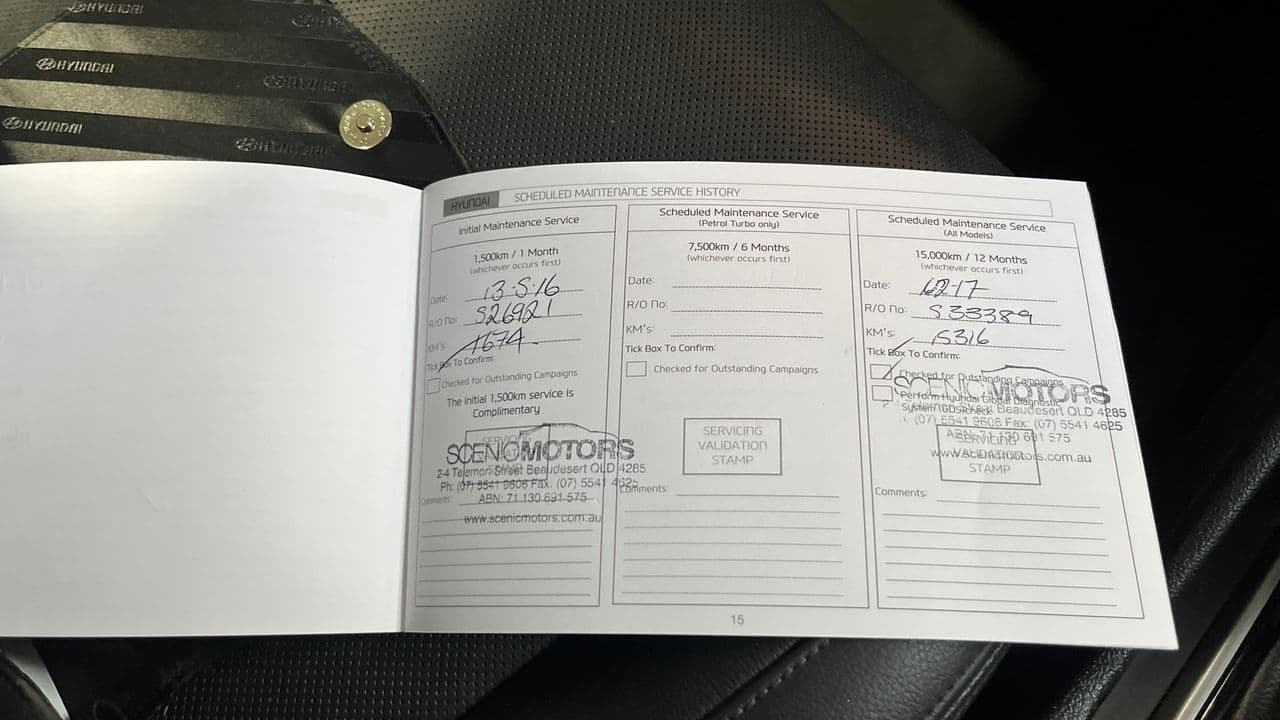 HYUNDAI
HYUNDAI
HYUNDAI
HYUNDAI
HYUNDAI SCHEDULED MAINTENANCE SERVICE HISTORY
Initial Maintenance Service
1,500km / 1 Month
(whichever occurs first)
Date: 13·5·16
R/O No: S26921
KM's: 1674
Tick Box To Confirm:
Checked for Outstanding Campaigns
The Initial 1,500km service is
Complimentary
SCENIC MOTORS
2-4 Telemon Street Beaudesert QLD 4285
Ph: (07) 5541 9606 Fax: (07) 5541 4625
Comments: ABN: 71 130 691 575
www.scenicmotors.com.au
Scheduled Maintenance Service
(Petrol Turbo only)
7,500km / 6 Months
(whichever occurs first)
Date:
R/O No:
KM's:
Tick Box To Confirm:
Checked for Outstanding Campaigns
SERVICING
VALIDATION
STAMP
Comments:
Scheduled Maintenance Service
(All Models)
15,000km / 12 Months
(whichever occurs first)
Date:
R/O No: S33389
KM's: 15316
Tick Box To Confirm:
Checked for Outstanding Campaigns
SCENIC MOTORS
Perform Hyundai Global Diagnostic
System
Beaudesert QLD 4285
(07) 5541 9606 Fax: (07) 5541 4625
ABN: 71 130 691 575
SERVICING
VALIDATION
STAMP
Comments:
15